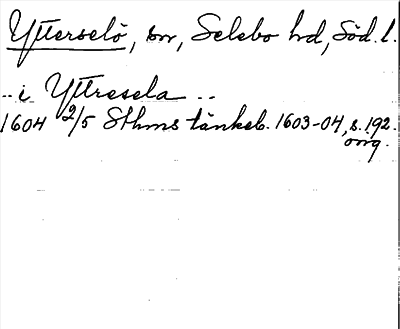 Ytterselö, sn, Selebo hd, Söd. l.
.. i Yttresela ..
1604 2/5 Sthms tänkeb. 1603-04, s. 192.
orig.